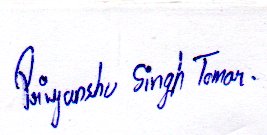 Priyanshu Singh Tomar.